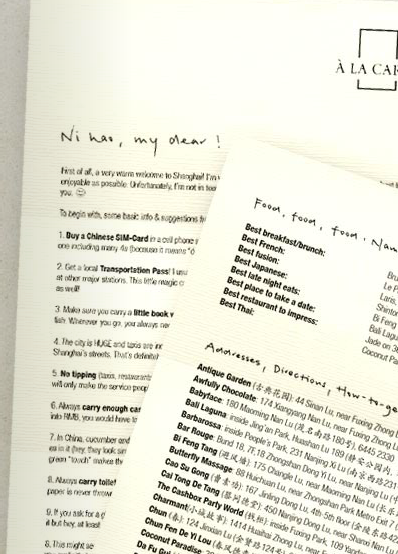 À LA CAR
Ni hao, my dear!
First of all, a very warm welcome to Shanghai! I'm
enjoyable as possible. Unfortunately, I'm not in
you.
To begin with, some basic info & suggestions
1. Buy a Chinese SIM-Card in a cell phone
one including many 4s (because it means "d
2. Get a local Transportation Pass! I
at other major stations. This little magic c
as well!
3. Make sure you carry a little book
fish. Wherever you go, you always
4. The city is HUGE and taxis are
Shanghai's streets. That's definitely
5. No tipping (taxis, restaurants
will only make the service peop
6. Always carry enough ca
into RMB, you would have to
7. In China, cucumber and
green "touch" makes the
8. Always carry toilet
paper is never
9. If you ask for a
it but hey, at least
8. This might
Food, food, food, Nam
Best breakfast/brunch:
Best French:
Best fusion:
Best Japanese:
Best late night eats:
Best place to take a date:
Best restaurant to impress:
Best Thai:
Bru
Le P
Laris,
Shinto
Bi Feng
Bali Lagu
Jade on 36
Coconut Pa
Addresses, Directions, How-to-ge
Antique Garden (古典花园) 44 Sinan Lu, near Fuxing Zhong L
Awfully Chocolate: 174 Xiangyang Nan Lu, near Fuxing Zhong Lu
Babyface: 180 Maoming Nan Lu (茂名南路180号), 6445 2330
Bali Laguna: inside Jing'an Park, Huashan Lu 189 (静安公园内,
Barbarossa: inside People's Park, 231 Nanjing Xi Lu (南京西路231
Bar Rouge: Bund 18, 7F, 18 Zhongshan Dong Yi Lu, near Nanjing Lu (中
Bi Feng Tang (避风塘): 175 Changle Lu, near Maoming Nan Lu
Butterfly Massage: 88 Huichuan Lu, near Zhongshan Park Metro Exit 7
Cao Su Gong (曹素功): 167 Jinling Dong Lu, 4th-5th Floor (金陵东路
Cai Tong De Tang (蔡同德堂) 450 Nanjing Dong Lu, near Shanxi Nan Lu
The Cashbox Party World (钱柜): inside Fuxing Park, 109 Yandang
Charmant (小城故事): 1414 Huaihai Zhong Lu, near
Chun (春): 124 Jinxian Lu (进贤路124号)
Chun Fen De Yi Lou
Coconut Paradise:
Da Fu Gui